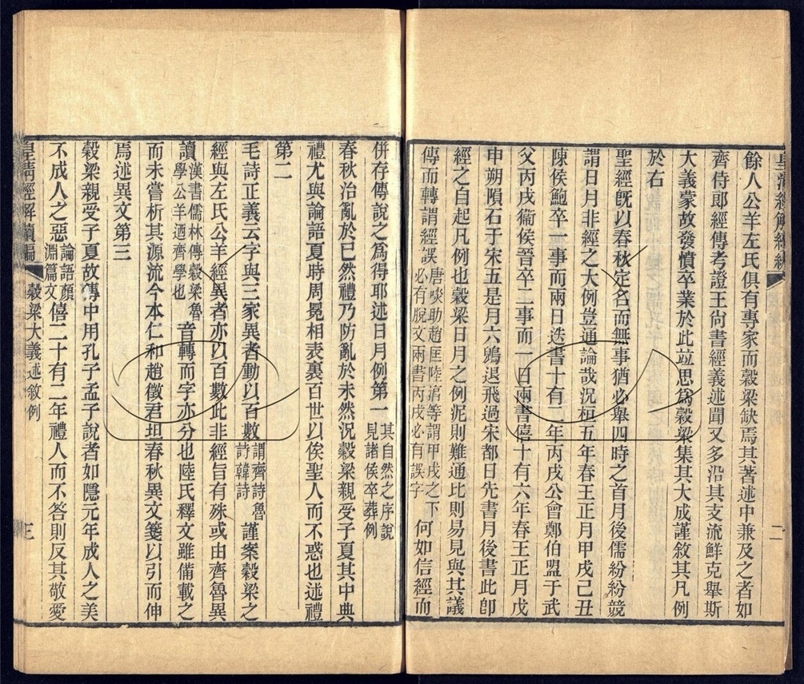 餘人公羊左氏俱有專家而穀梁缺焉其著述中兼及之者如
齊侍郎經傳考證王尚書經義述聞又多沿其支流鮮克舉斯
大義蒙故發憤卒業於此竝思為穀梁集其大成謹敘其凡例
於右
聖經旣以春秋定名而無事猶必舉四時之首月後儒紛紛競
謂日月非經之大例豈通論哉況桓五年春王正月甲戌己丑
陳侯鮑卒一事而兩日迭書十有二年丙戌公會鄭伯盟于武
父丙戌衞侯晉卒二事而一日兩書僖十有六年春王正月戊
申朔隕石于宋五是月六鶂退飛過宋都日先書月後書此卽
經之自起凡例也穀梁日月之例泥則難通比則易見與其議
傳而轉謂經誤唐啖助趙匡陸淳等謂甲戌之下必有脫文兩書丙戌必有誤字何如信經而
二
皇清經解續編
併存傳說之為得耶述日月例第一其自然之序說見諸侯卒葬例
春秋治亂於已然禮乃防亂於未然況穀梁親受子夏其中典
禮尤與論語夏時周冕相表裏百世以俟聖人而不惑也述禮
第二
毛詩正義云字與三家異者動以百數謂齊詩魯詩韓詩謹案穀梁之
經與左氏公羊經異者亦以百數此非經旨有殊或由齊魯異
讀漢書儒林傳穀梁魯學公羊迺齊學也音轉而字亦分也陸氏釋文雖備載之
而未嘗析其源流今本仁和趙徵君坦春秋異文箋以引而伸
焉述異文第三
穀梁親受子夏故傳中用孔子孟子說者如隱元年成人之美
不成人之惡論語顏淵篇文僖二十有二年禮人而不答則反其敬愛
皇清經解續編
穀梁大義述敘例
三